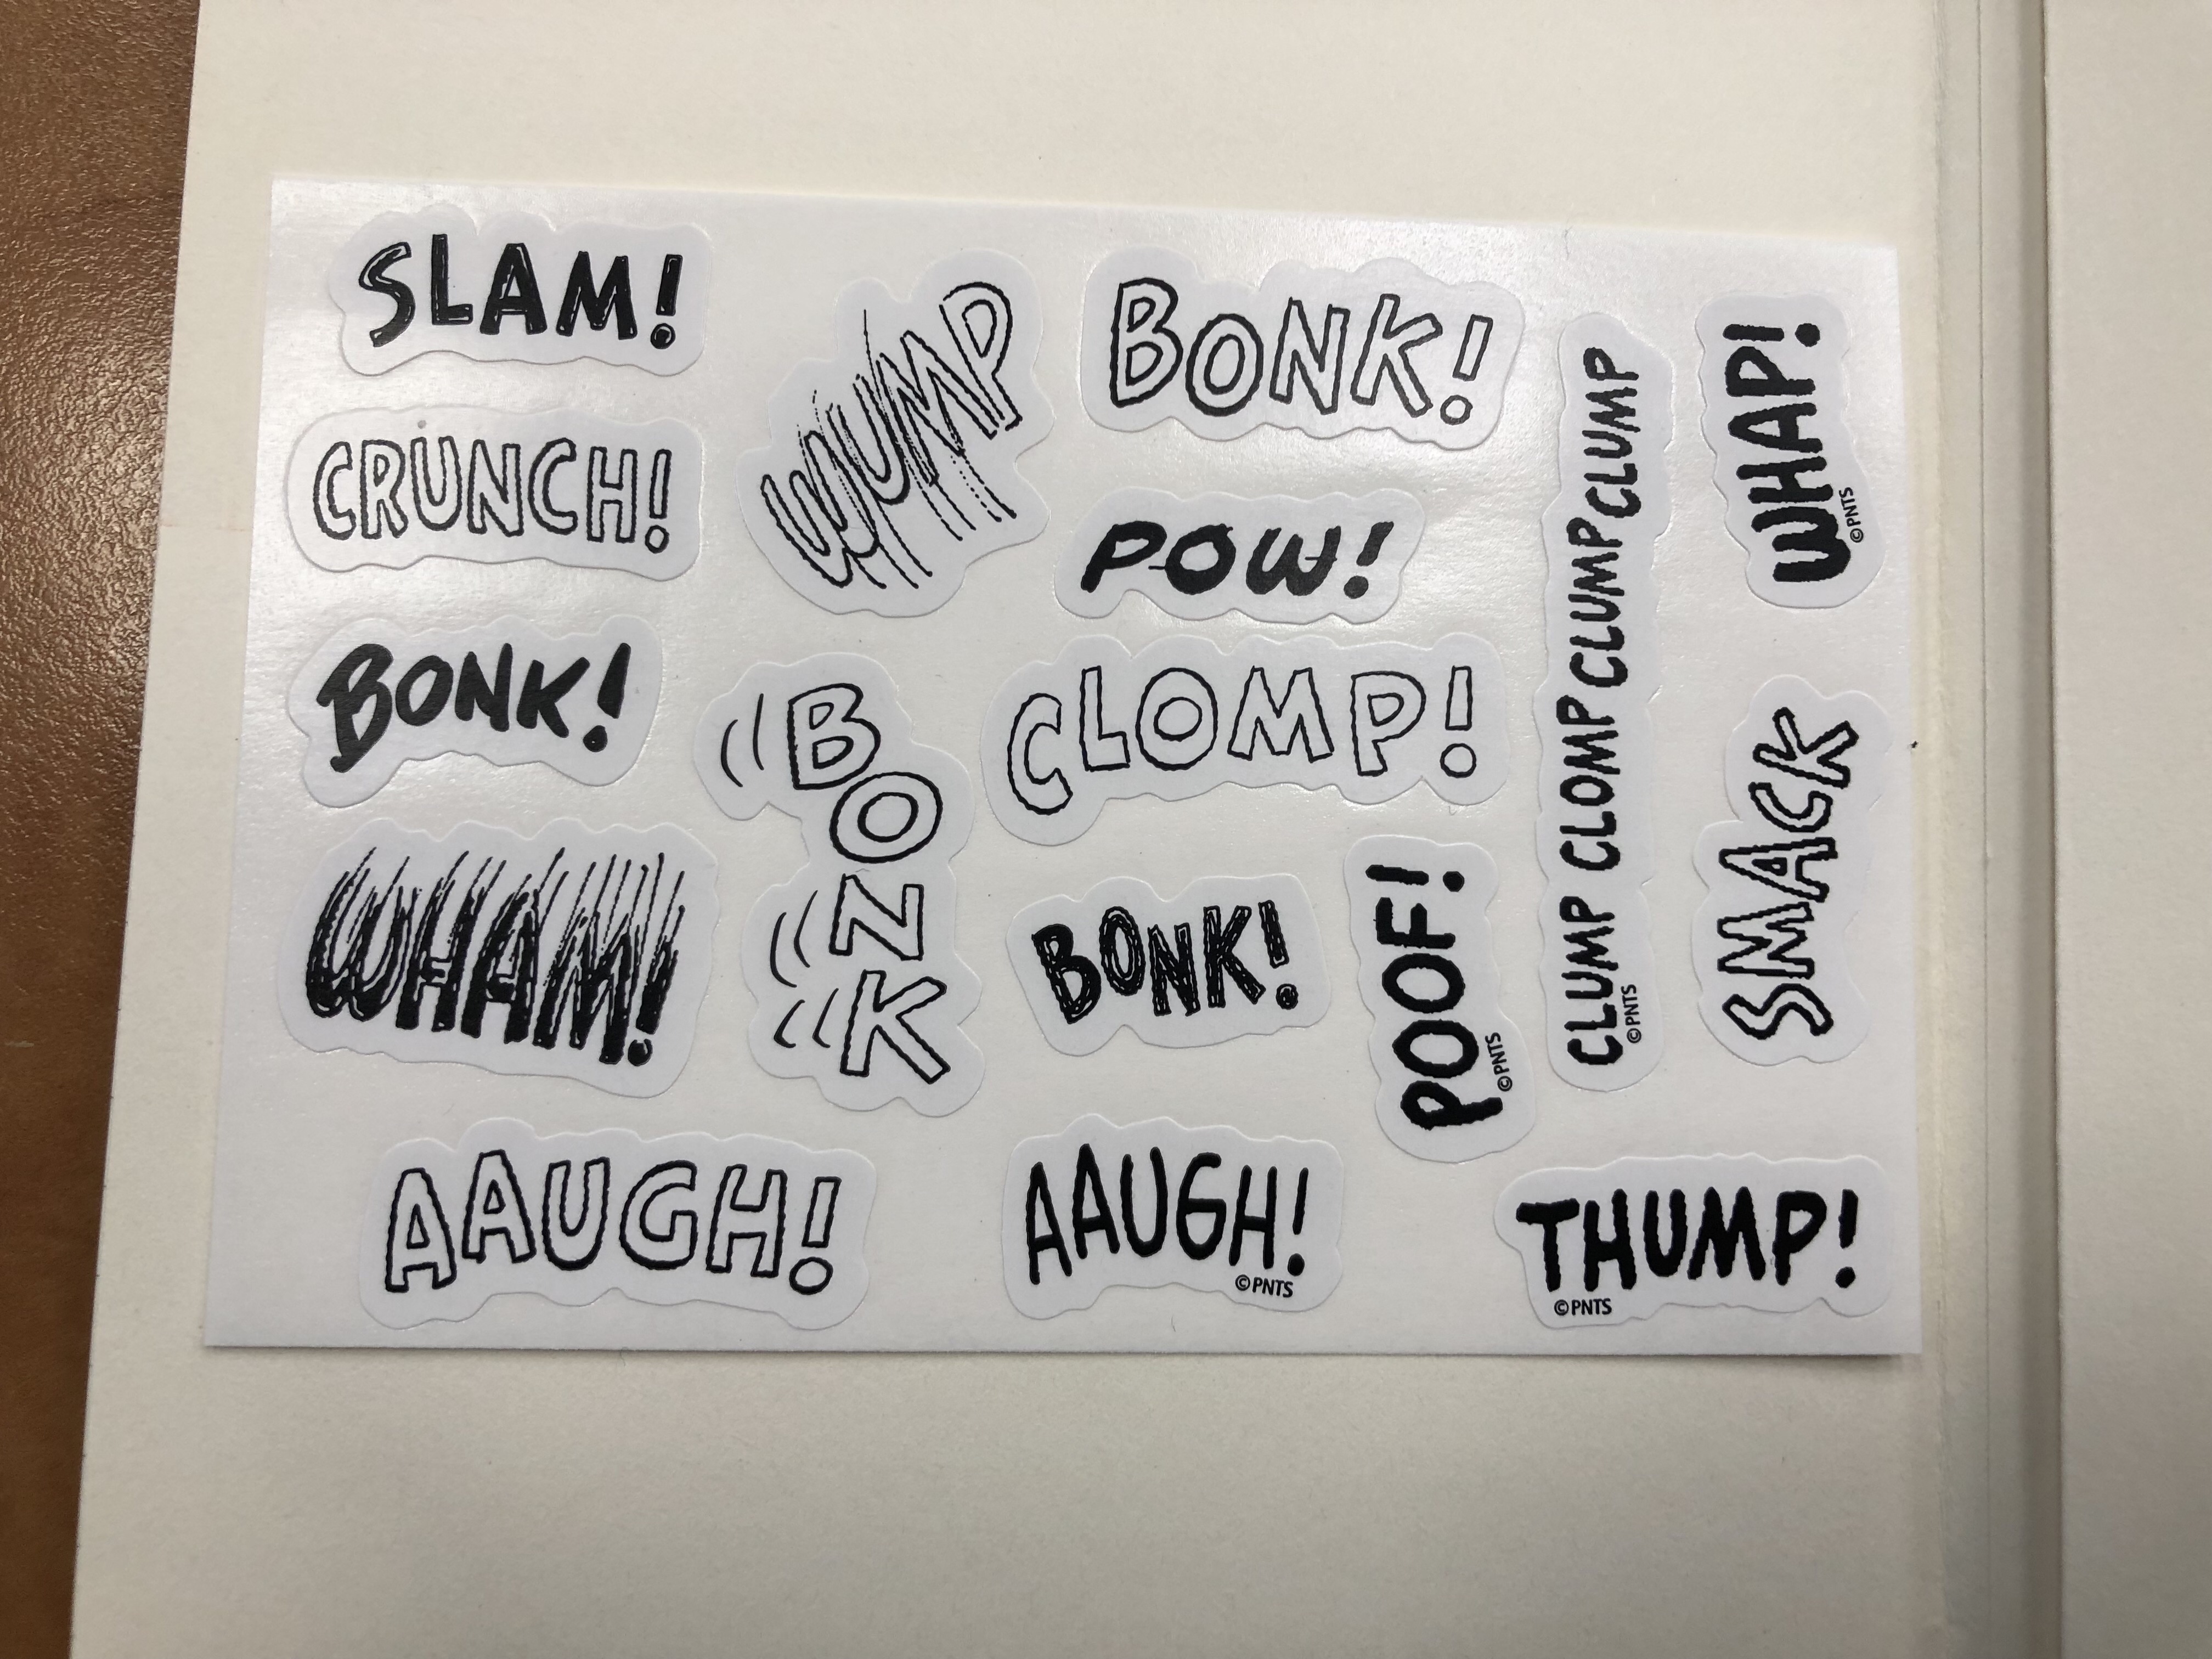 SLAM!
WUMP
BONK!
CLUMP CLOMP CLUMP CLUMP
©PNTS
WHAP!
©PNTS
CRUNCH!
POW!
BONK!
BONK
CLOMP!
SMACK
WHAM!
BONK!
POOF!
©PNTS
AAUGH!
AAUGH!
©PNTS
THUMP!
©PNTS